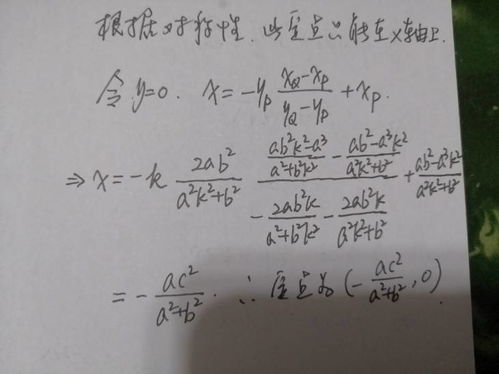 根据对称性.此定点只能在x轴上.
令y=0. x=-y_P (x_Q-x_P)/(y_Q-y_P)+x_P.
⇒ x=-k 2ab²/(a²k²+b²) ((ab²k²-a³)/(a²+b²k²)-(ab²-a³k²)/(a²k²+b²))/(-2ab²k/(a²+b²k²)-2ab²k/(a²k²+b²))+(ab²-a³k²)/(a²k²+b²)
=-ac²/(a²+b²). ∴定点为(-ac²/(a²+b²),0)